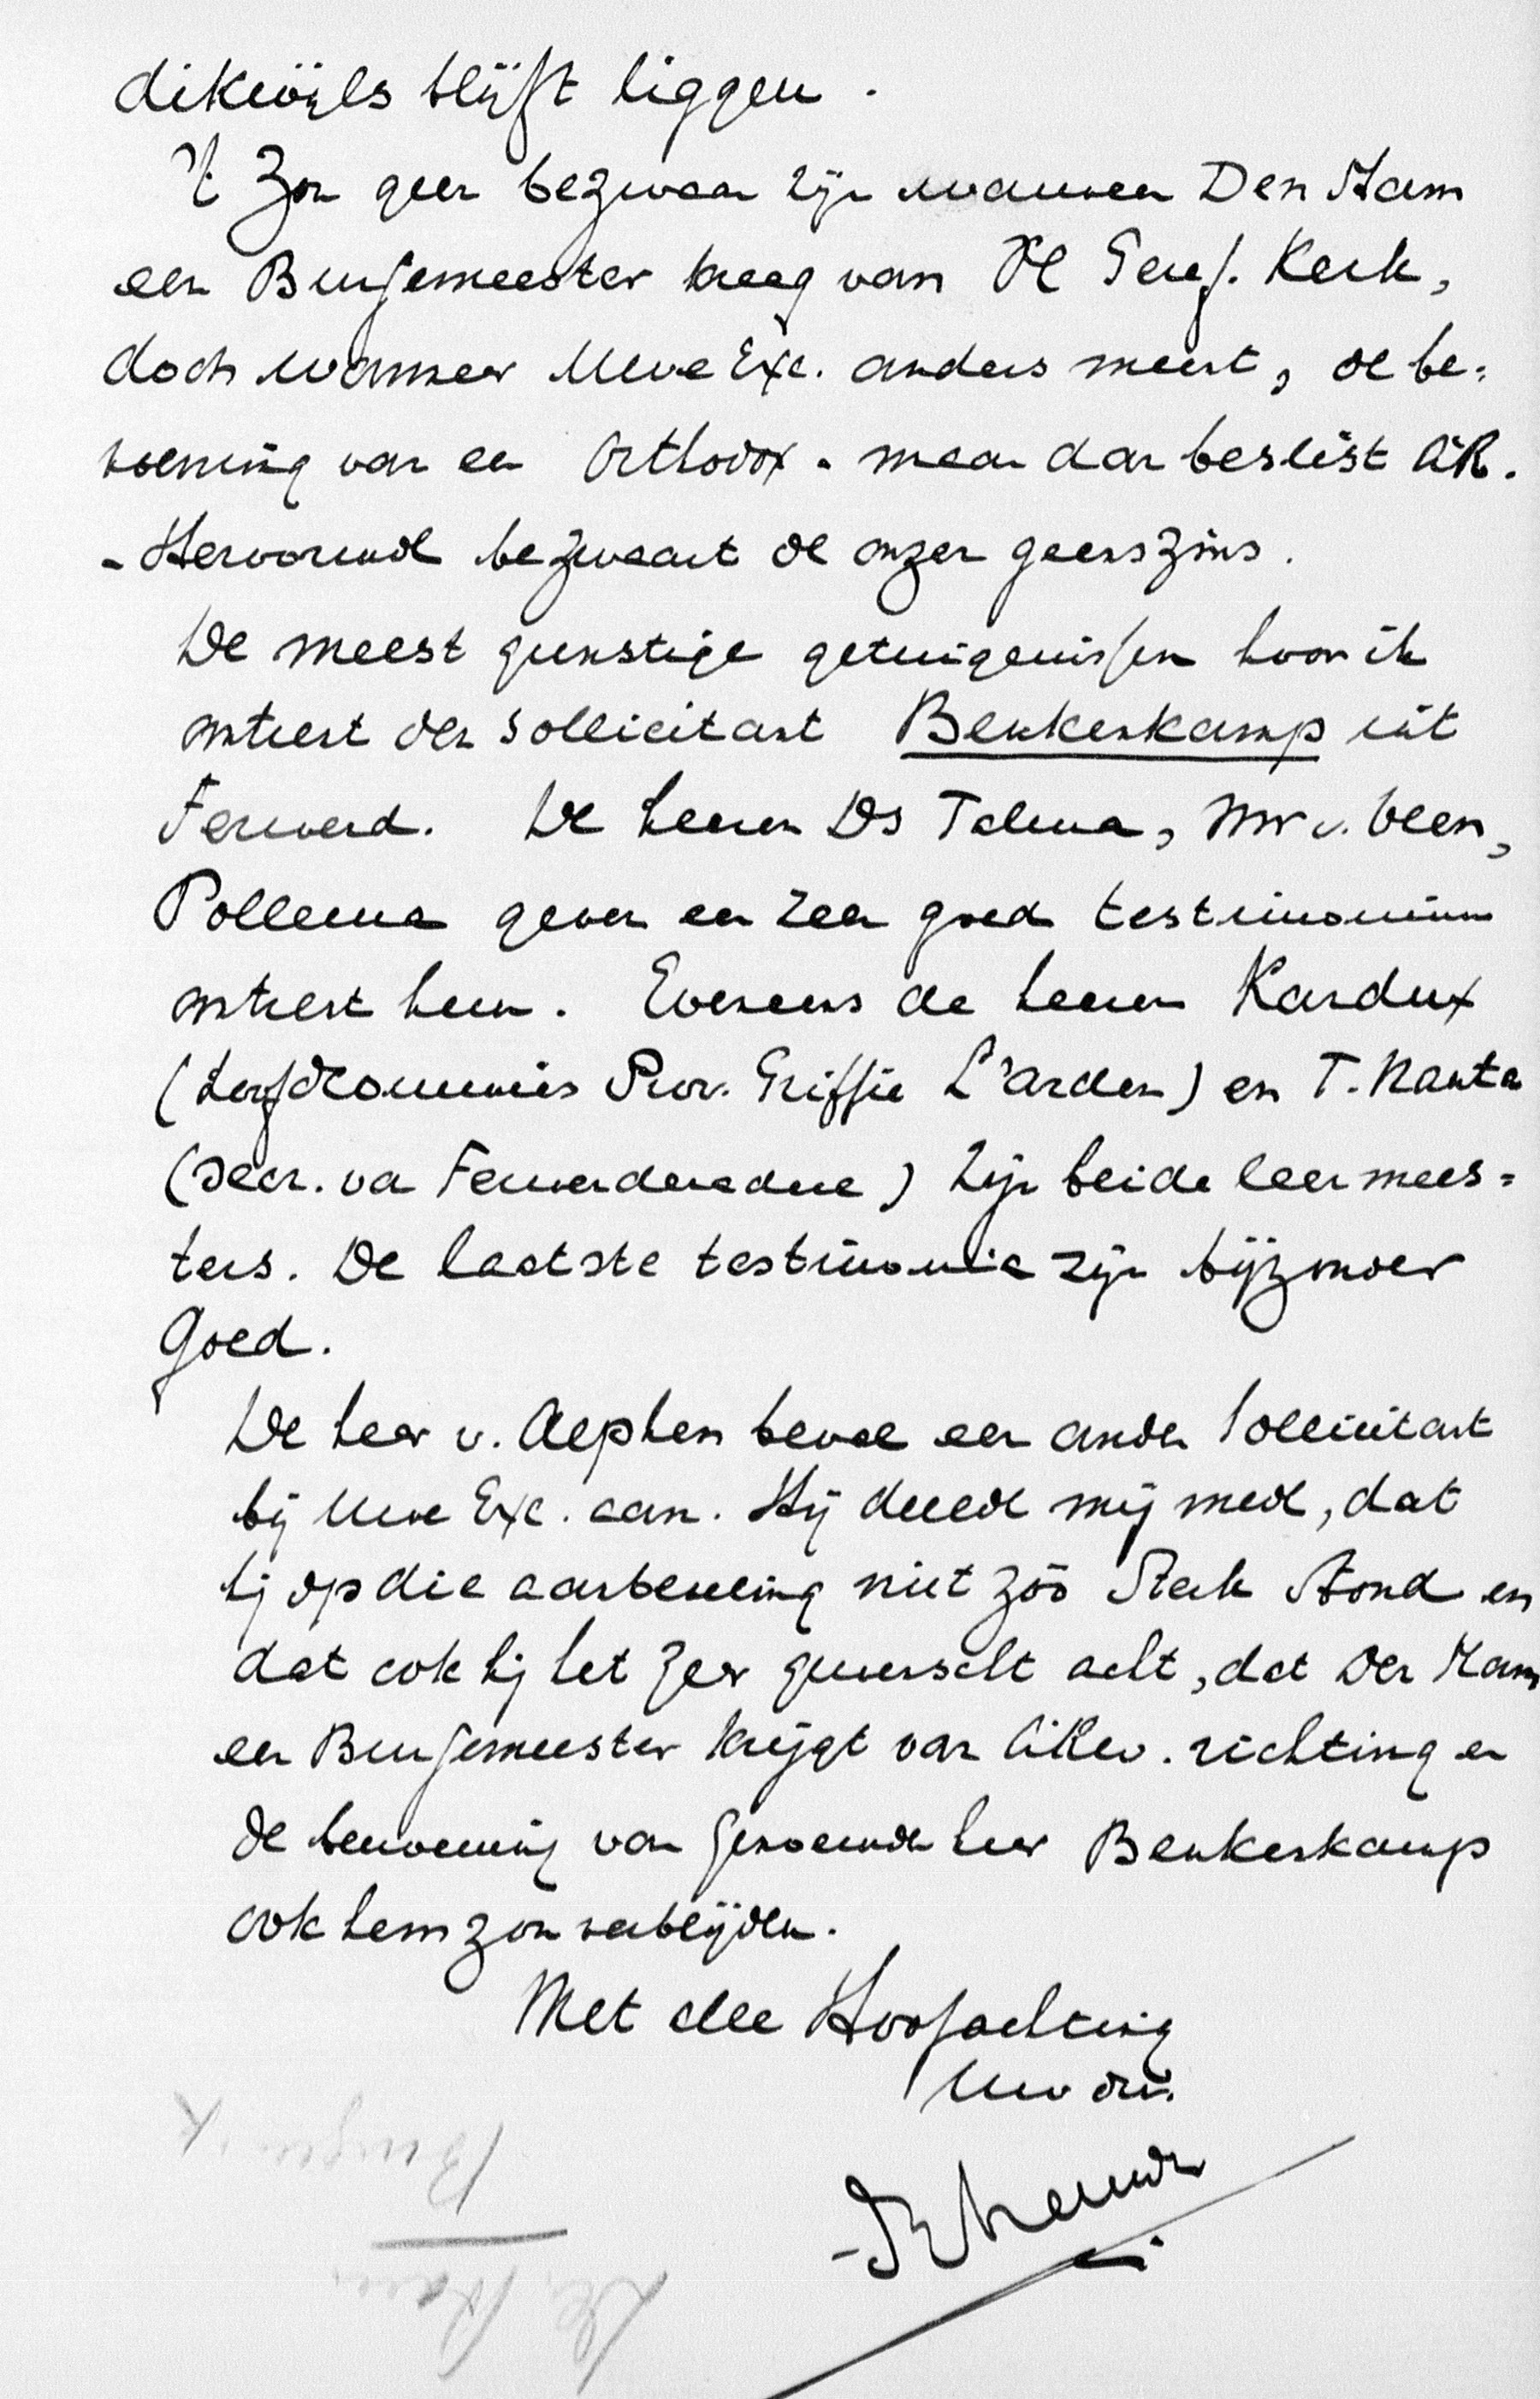 dikwijls blijft liggen.
't Zou geen bezwaar zijn wanneer Den Ham
een Burgemeester kreeg van de Geref. Kerk,
doch wanneer Uwe Exc. anders meent, de be=
noeming van een Orthodox - maar dan beslist AR.
- Hervormde bezwaart de onzen geenszins.
De meest gunstige getuigenissen hoor ik
omtrent den Sollicitant Beukenkamp uit
Ferwerd. De heeren Ds Talma, Mr v. Veen,
Pollema geven een zeer goed testimonium
omtrent hem. Eveneens de heeren Kardux
(hoofdcommies Prov. Griffie L'arden) en T. Nauta
(Secr. van Ferwerderadeel) zijn beide leermees=
ters. De laatste testimonia zijn bijzonder
Goed.
De heer v. Alphen beval een ander Sollicitant
bij Uwe Exc. aan. Hij deelde mij mede, dat
hij op die aanbeveling niet zóó Sterk Stond en
dat ook hij het zeer gewenscht acht, dat Den Ham
een Burgemeester krijgt van A.Rev. richting en
de benoeming van genoemde heer Beukenkamp
ook hem zou verblijden.
Met alle Hoogachting
Uw dr.
Burgem.
Den Ham